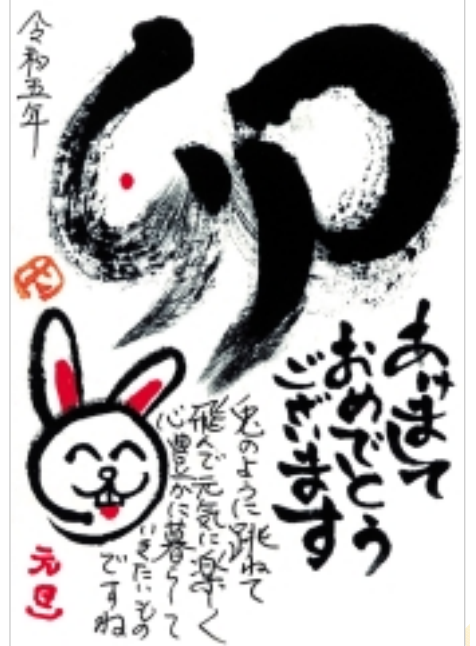 令和五年
卯
あけまして
おめでとう
ございます
兎のように跳ねて
飛んで元気に楽しく
心豊かに暮らして
いきたいもの
ですね
元旦